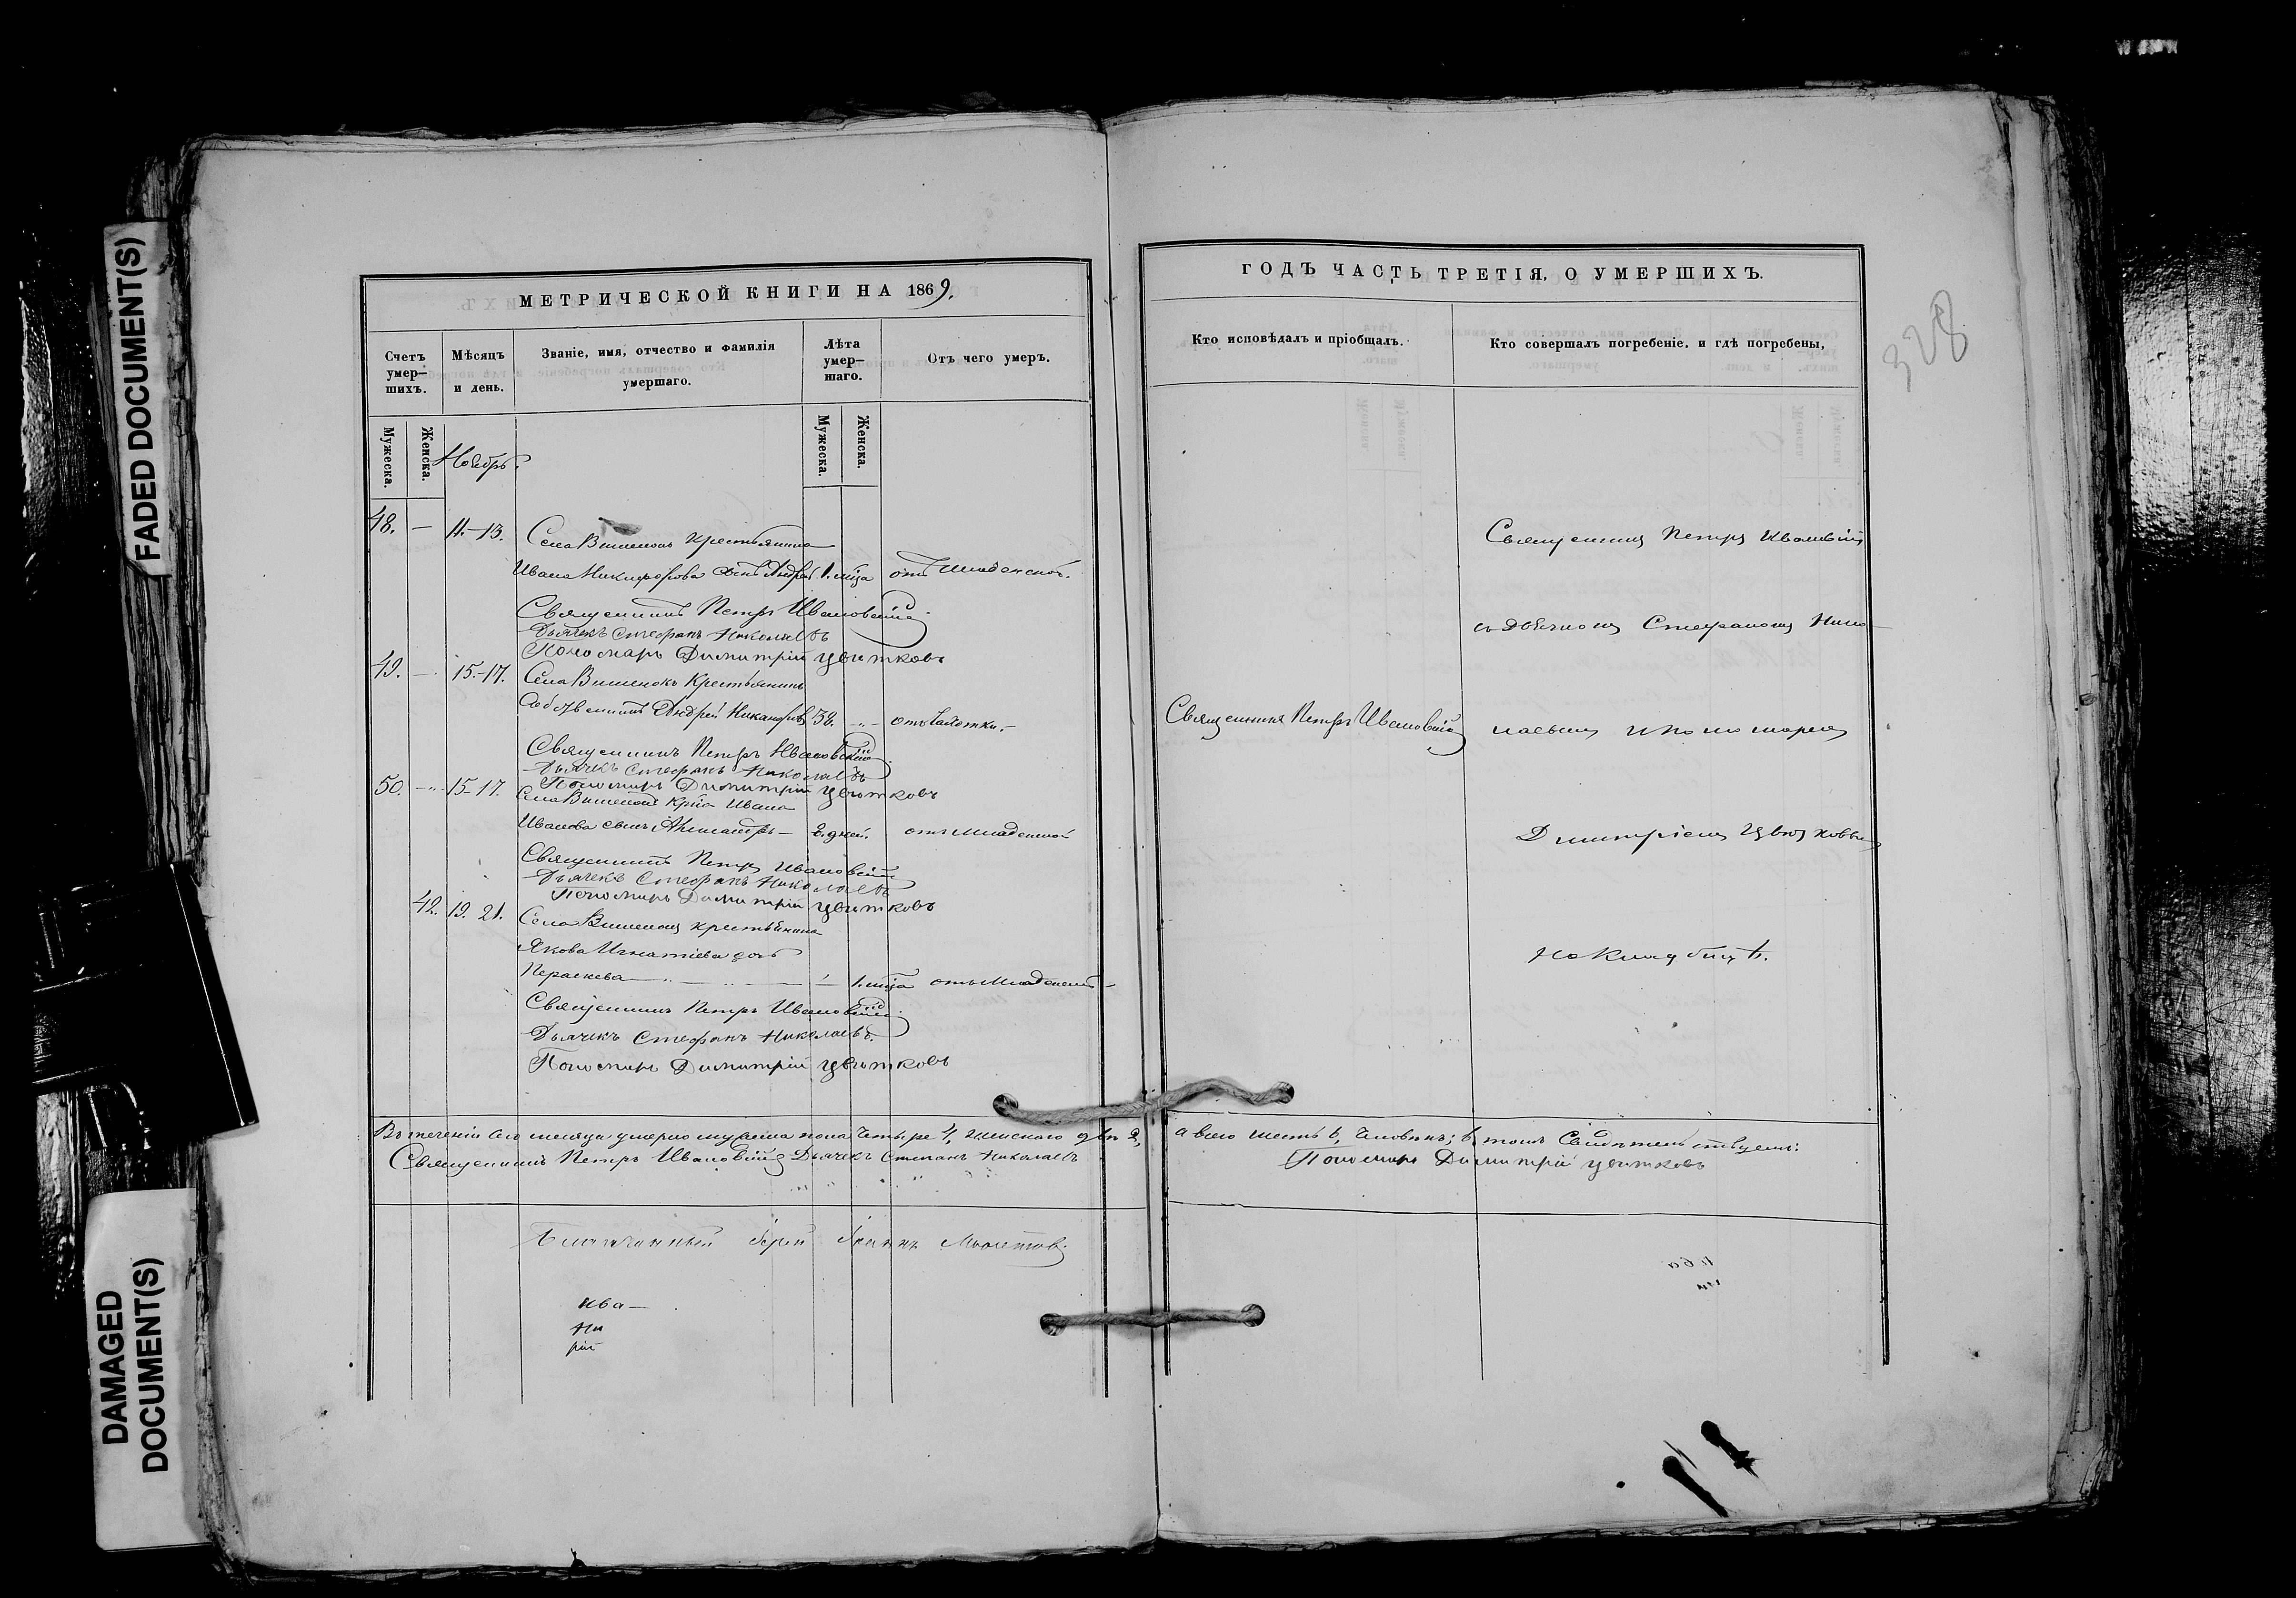 FADED DOCUMENT(S)
DAMAGED
DOCUMENT(S)
МЕТРИЧЕСКОЙ КНИГИ НА 1869.
Счетъ
умер–
шихъ.
Мѣсяцъ
и день.
Званіе, имя, отчество и фамилія
умершаго.
Лѣта
умер–
шаго.
Отъ чего умеръ.
Мужеска.
Женска.
Ноябрь.
Мужеска.
Женска.
48. — 11.–13. Села Вишенокъ крестьянина
Ивана Никифорова сынъ Андрей 1. мца отъ младенской.
Священникъ Петръ Ивановскій
Дьячекъ Стефанъ Николаевъ
Пономарь Димитрій Цвѣтковъ
49. — 15.–17. Села Вишенокъ Крестьянинъ
Собственникъ Андрей Никаноровъ 38. — отъ чахотки.–
Священникъ Петръ Ивановскій
Дьячекъ Стефанъ Николаевъ
Пономарь Димитрій Цвѣтковъ
50. — 15–17. Села Вишенокъ Кр–на Ивана
Иванова сынъ – 2. дней. отъ младенской
Священникъ Петръ Ивановскій
Дьячекъ Стефанъ Николаевъ
Пономарь Димитрій Цвѣтковъ
42. 19. 21. Села Вишенокъ крестьянина
Якова Игнатіева дочь
Параскева — 1. мца отъ младенской –
Священникъ Петръ Ивановскій
Дьячекъ Стефанъ Николаевъ.
Пономарь Димитрій Цвѣтковъ
Въ теченіи сего месяца умерло мужеска пола четыре 4, женскаго двѣ 2,
Священникъ Петръ Ивановскій Дьячекъ Степанъ Николаевъ
Благочинный Іерей Іоаннъ
ива—
ни
рій
ГОДЪ ЧАСТЬ ТРЕТІЯ, О УМЕРШИХЪ.
328
Кто исповѣдалъ и пріобщалъ.
Кто совершалъ погребеніе, и гдѣ погребены,
Священникъ Петръ Ивановскій
съ дьячкомъ Стефаномъ Нико–
Священникъ Петръ Ивановскій
лаевымъ и пономаремъ
Димитріемъ Цвѣтковымъ
на кладбищѣ.
а всего шесть 6, человѣкъ; въ томъ свидѣтельствуемъ:
Пономарь Димитрій Цвѣтковъ